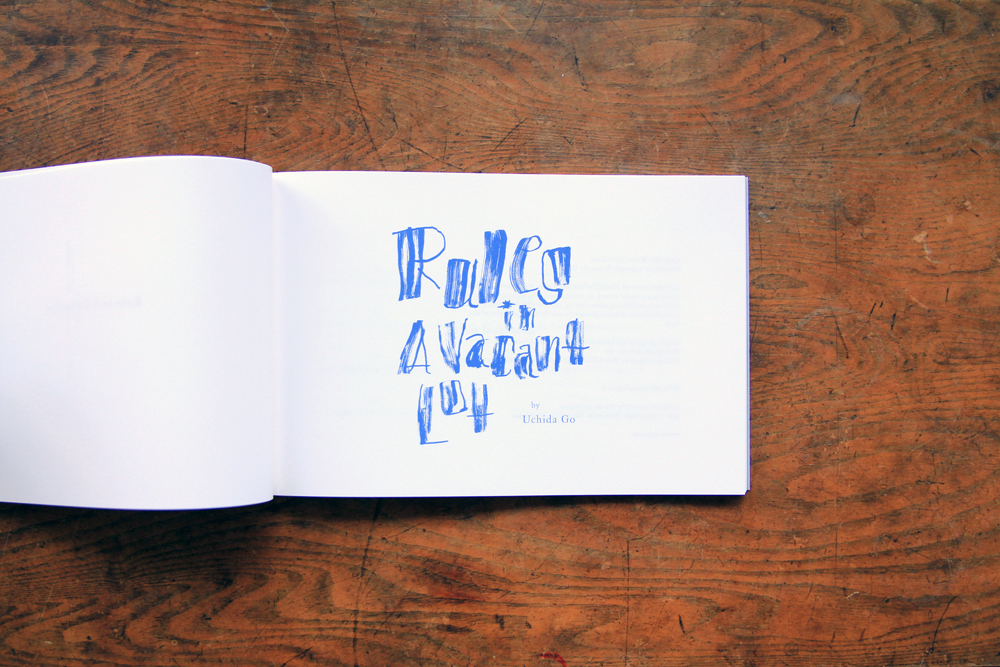 Rules
in
A Vacant
Lot
by
Uchida Go